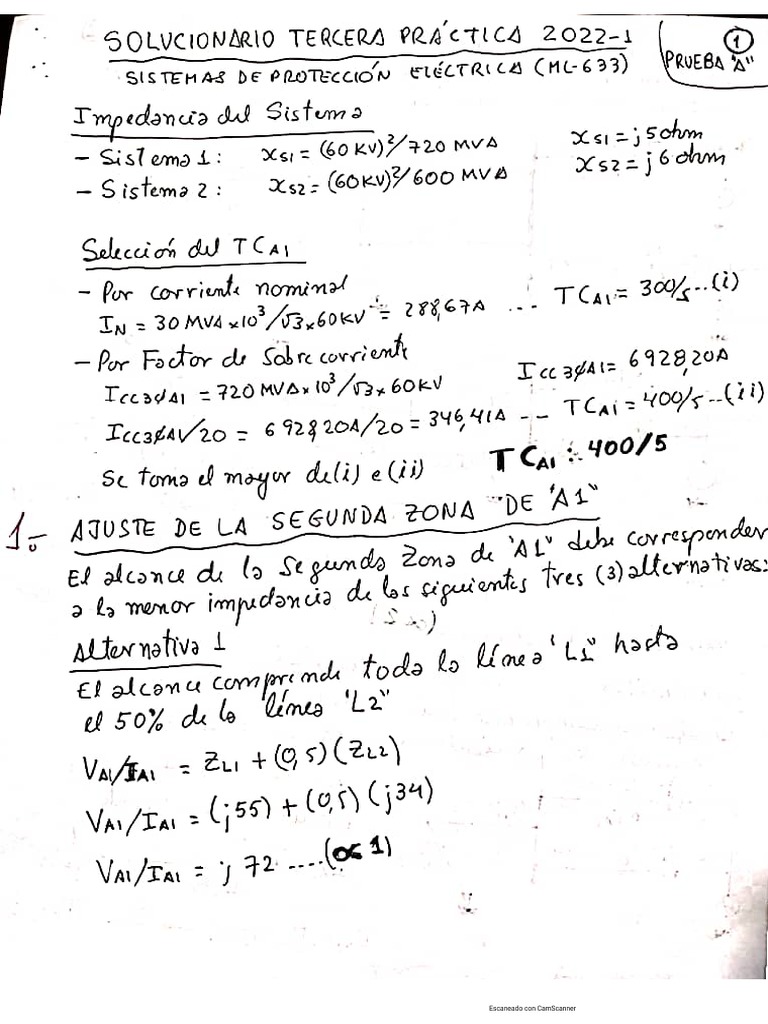 SOLUCIONARIO TERCERA PRÁCTICA 2022-1
SISTEMAS DE PROTECCIÓN ELÉCTRICA (ML-633)
1
PRUEBA "A"
Impedancia del Sistema
- Sistema 1: XS1 = (60 KV)²/720 MVA XS1 = j5 ohm
- Sistema 2: XS2 = (60KV)²/600 MVA XS2 = j6 ohm
Selección del TCA1
- Por corriente nominal
IN = 30 MVA×10³/√3×60KV = 288,67A ... TCA1 = 300/5...(i)
- Por Factor de Sobrecorriente
ICC3ØA1 = 720 MVA×10³/√3×60KV ICC3ØA1 = 6928,20A
ICC3ØA1/20 = 6928,20A/20 = 346,41A -- TCA1 = 400/5...(ii)
Se toma el mayor de (i) e (ii) TCA1 : 400/5
1.- AJUSTE DE LA SEGUNDA ZONA "DE A1"
El alcance de la Segunda Zona de "A1" debe corresponder
a la menor impedancia de las siguientes tres (3) alternativas:
Alternativa 1
El alcance comprende toda la línea "L1" hasta
el 50% de la línea "L2"
VA1/IA1 = ZL1 + (0,5)(ZL2)
VA1/IA1 = (j55) + (0,5)(j34)
VA1/IA1 = j 72 ....(α 1)
Escaneado con CamScanner